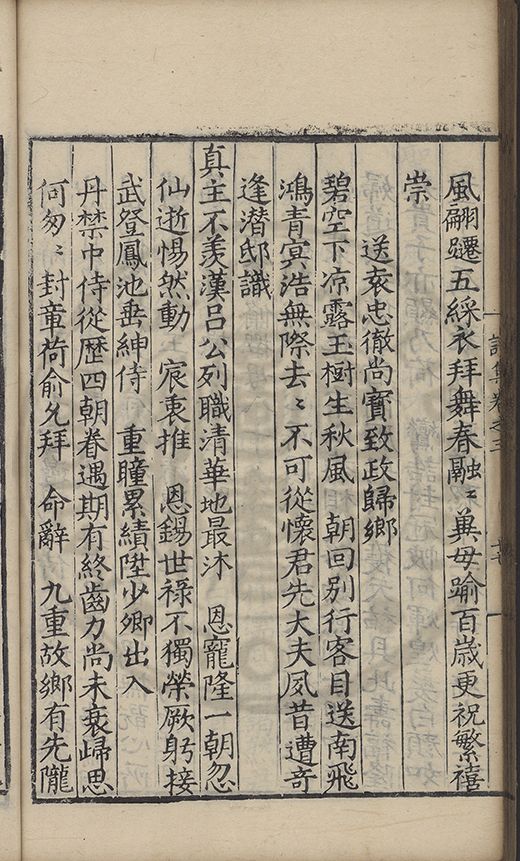 風翩躚五綵衣拜舞春融〻蕪母踰百歲更祝繁禧
崇
送袁忠徹尚寶致政歸鄉
碧空下凉露玉樹生秋風　朝回別行客目送南飛
鴻青冥浩無際去〻不可從懷君先大夫夙昔遭奇
逢潛邸識
真主不羨漢吕公列職清華地最沐　恩寵隆一朝忽
仙逝惕然動　宸衷推　恩錫世禄不獨榮厥躬接
武登鳳池垂紳侍　重瞳累績陞少卿出入
丹禁中侍從歷四朝眷遇期有終齒力尚未衰歸思
何匆〻封章荷俞允拜　命辭　九重故鄉有先隴
詩集卷之三